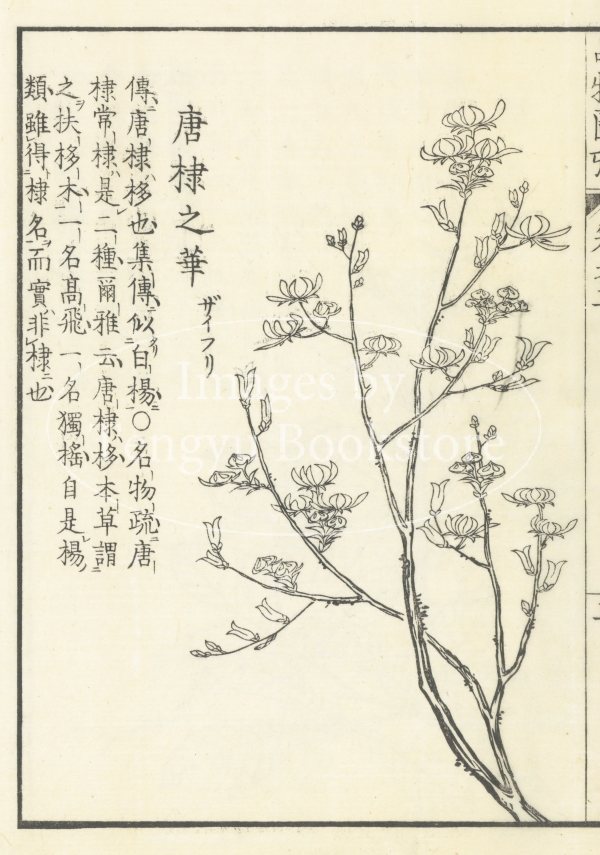 唐棣之華
ザイフリ
傳唐棣栘也集傳似白楊○名物疏唐
棣常棣是二種爾雅云唐棣栘本草謂
之扶栘木一名高飛一名獨搖自是楊
類雖得棣名而實非棣也
Images by
Kengyu Bookstore